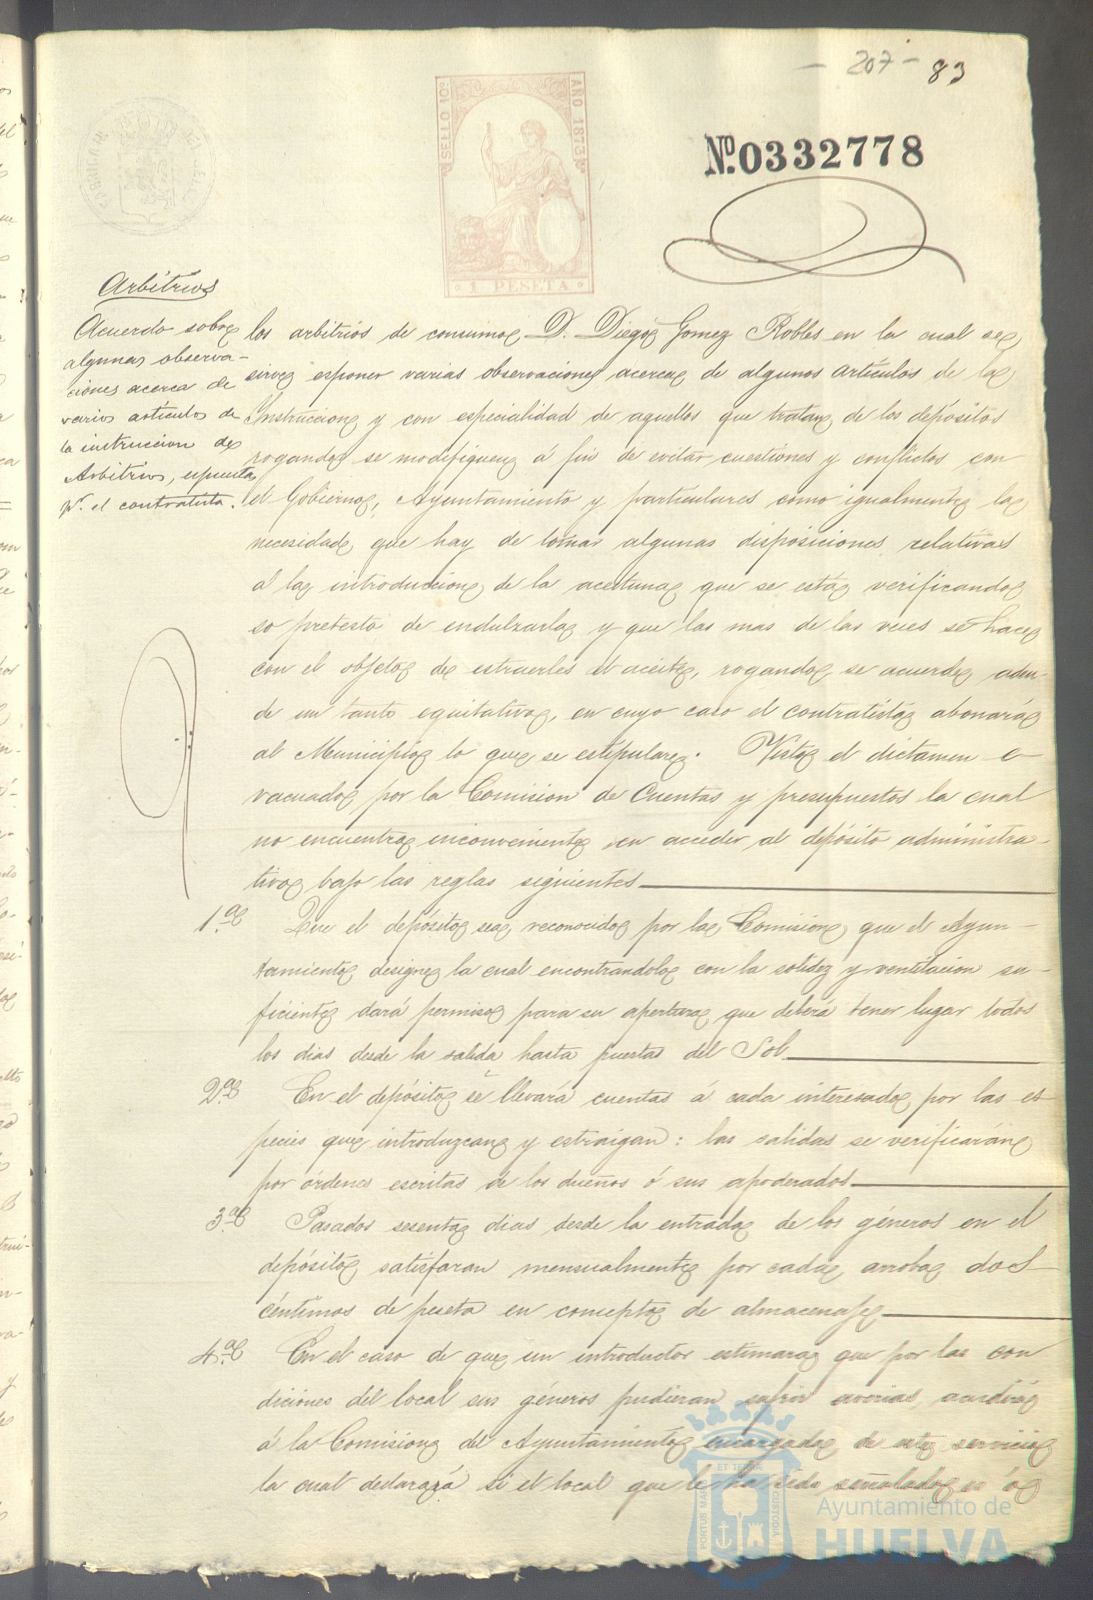 - 207 - 83
SELLO 10º AÑO 1873
1 PESETA
Nº. 0332778
Arbitrios
Acuerdo sobre
algunas observa-
ciones acerca de
varios artículos de
la instruccion de
Arbitrios, espuesta
pr. el contratista.
los arbitrios de consumos D. Diego Gomez Robles en la cual se
sirve esponer varias observaciones acerca de algunos artículos de la
Instruccion y con especialidad de aquellos que tratan de los depósitos
rogando se modifiquen á fin de evitar cuestiones y conflictos con
el Gobierno, Ayuntamiento y particulares como igualmente la
necesidad que hay de tomar algunas disposiciones relativas
á la introduccion de la acetuna que se está verificando
so pretesto de endulzarla y que las mas de las veces se hace
con el objeto de estraerles el aceite, rogando se acuerde aden-
de un tanto equitativo, en cuyo caso el contratista abonará
al Municipio lo que se estipulare. Visto el dictamen e-
vacuado por la Comision de Cuentas y presupuestos la cual
no encuentra inconveniente en acceder al depósito administra-
tivo bajo las reglas siguientes
1.ª Que el depósito sea reconocido por la Comision que el Ayun-
tamiento designe la cual encontrandolo con la solidez y ventilacion su-
ficiente dará permiso para su apertura que deberá tener lugar todos
los dias desde la salida hasta puestas del Sol
2.ª En el depósito se llevará cuentas á cada interesado por las es-
pecies que introduzcan y estraigan: las salidas se verificarán
por órdenes escritas de los dueños ó sus apoderados
3.ª Pasados sesenta dias desde la entrada de los géneros en el
depósito satisfaran mensualmente por cada arroba dos
céntimos de peseta en concepto de almacenaje
4.ª En el caso de que un introductor estimara que por las con
diciones del local sus géneros pudieran sufrir averias, acudirá
á la Comision del Ayuntamiento encargada de este servicio
la cual declarará si el local que le ha sido señalado es ó
PORTUS MARIS ET TERRAE CUSTODIA
Ayuntamiento de
HUELVA